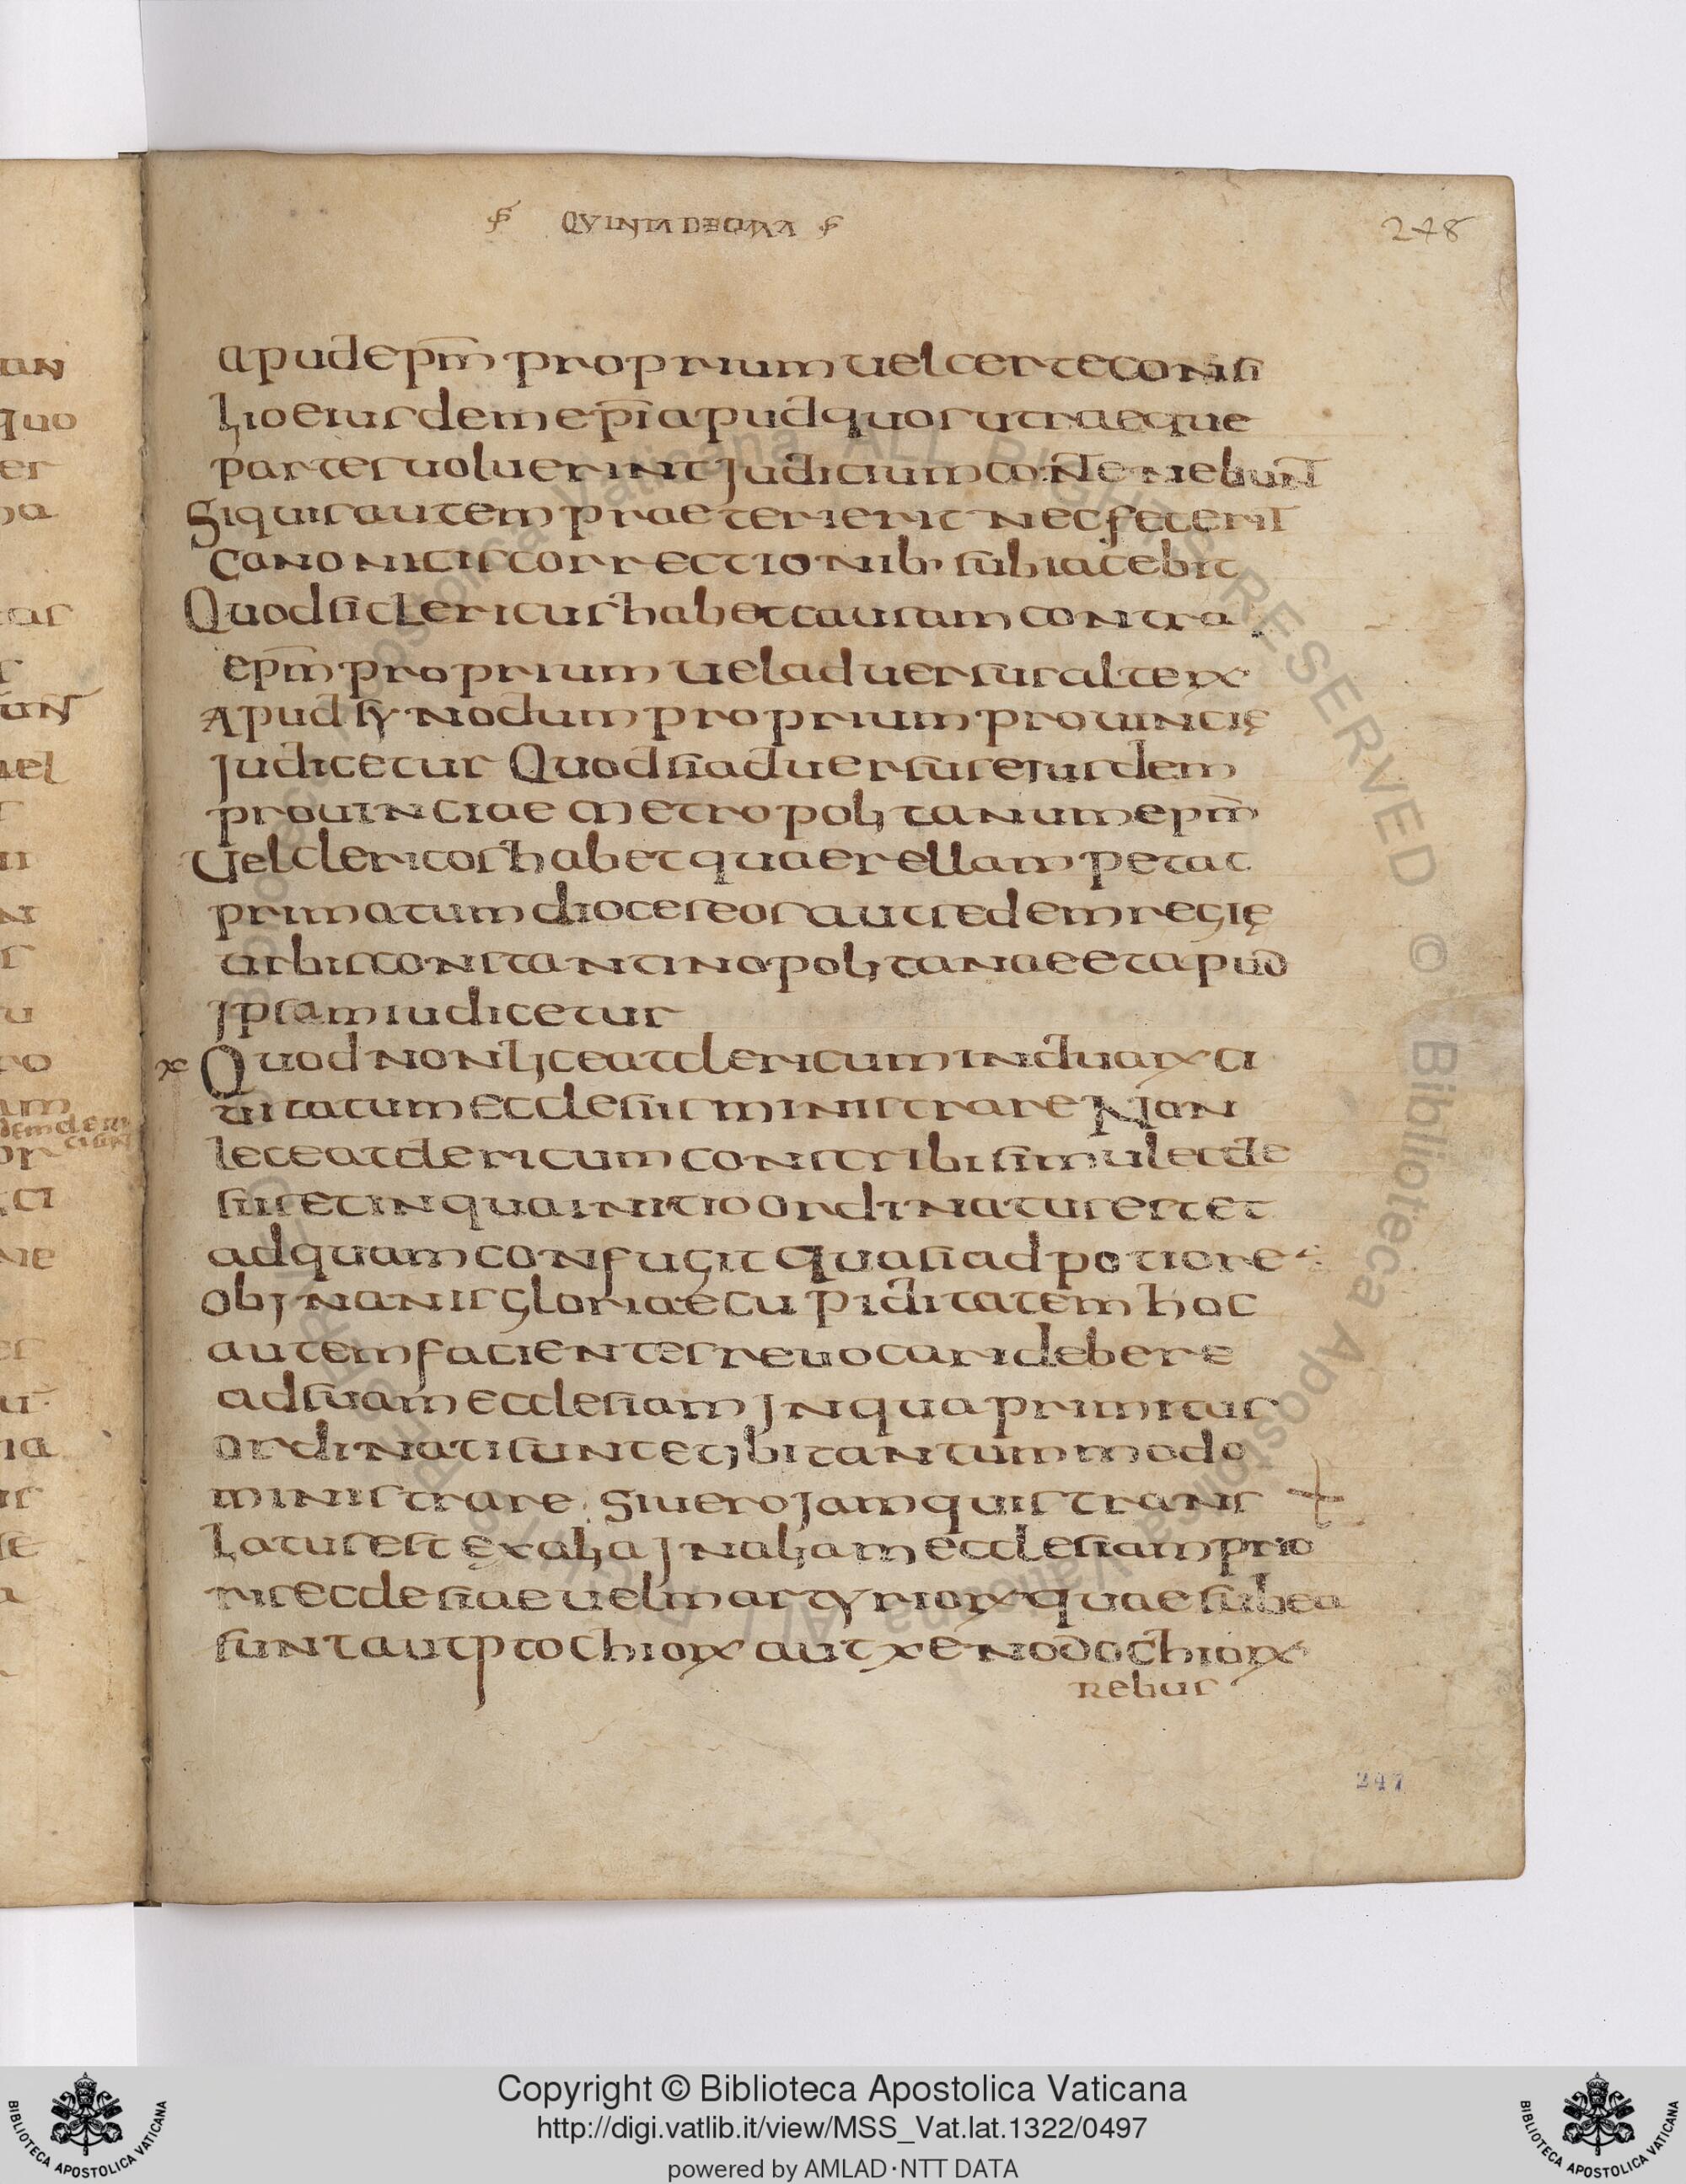 QVINTA DECIMA
248
apud ep̄m proprium uel certe consi
lio eiusdem ep̄i apud quos utraeque
partes uoluerint judicium conten̄ebun̄t
Siquis autem praeterierit nec fecerit
canonicis correctionib· subiacebit
Quod si clericus habet causam contra
ep̄m proprium uel aduersus alterꝝ
Apud synodum proprium prouincię
judicetur Quod si aduersus eiusdem
prouinciae metropolitanum ep̄m
Uel clericos habet quaerellam petat
primatum dioceseos aut sedem regię
urbis constantinopolitanae et apud
jpsam iudicetur
x Quod non liceat clericum in duaꝝ ci
uitatum ecclesiis ministrare Non
leceat clericum conscribi simul eccle
siis et in qua initio ordinatus est et
ad quam confugit quasi ad potiore
ob jnanis gloriae cupiditatem hoc
autem facientes reuocari debere
ad suam ecclesiam jn qua primitus
ordinati sunt et jbi tantummodo
ministrare. Si uero jam quis trans
latus est ex alia jn aliam ecclesiam prio
ris ecclesiae uel martyrioꝝ quae sub ea
sunt aut ptochioꝝ aut xenodochioꝝ
rebus
247
Copyright © Biblioteca Apostolica Vaticana
http://digi.vatlib.it/view/MSS_Vat.lat.1322/0497
powered by AMLAD·NTT DATA